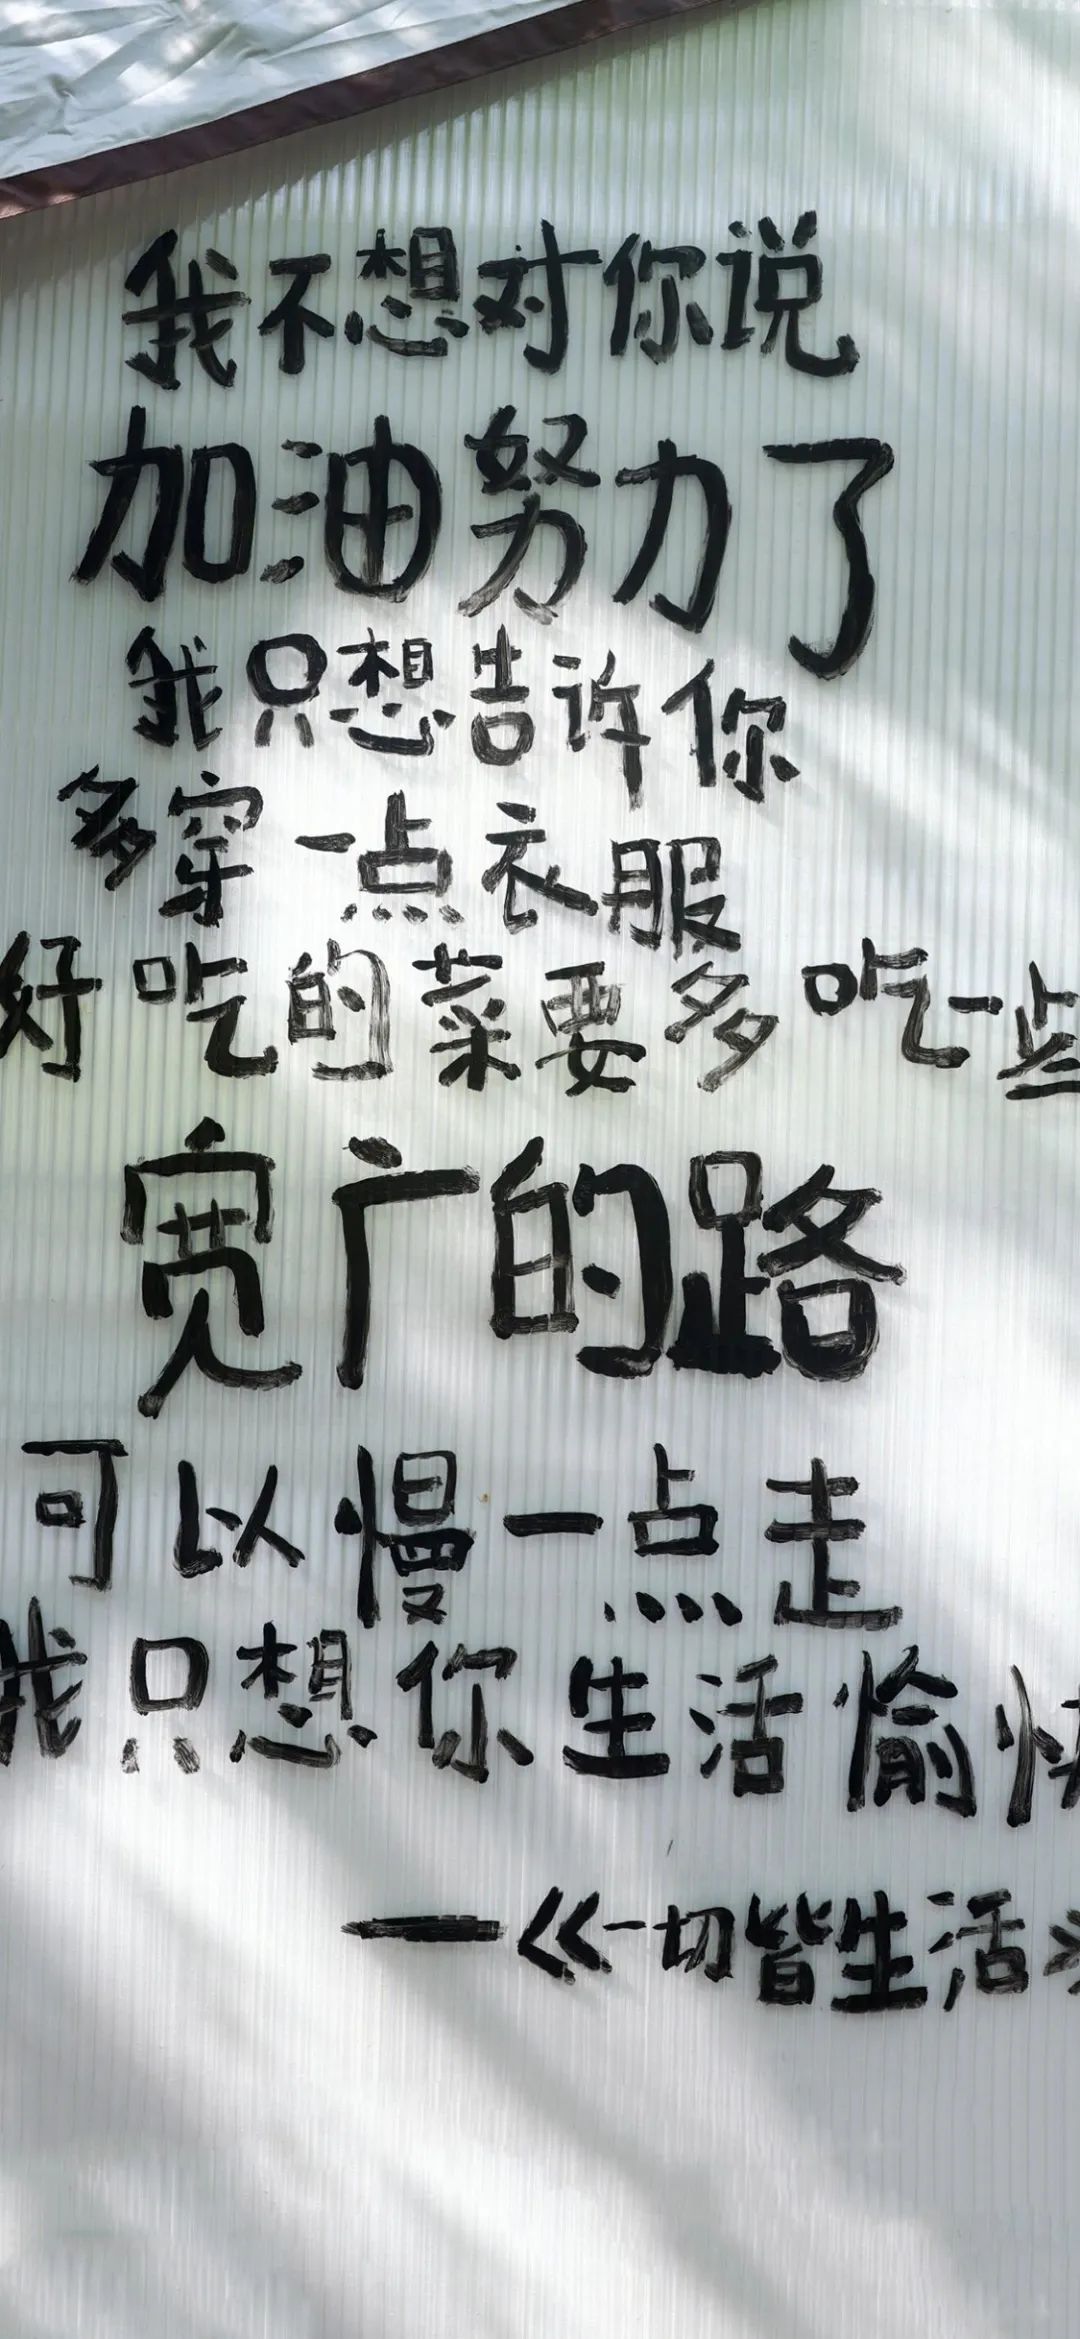 我不想对你说
加油努力了
我只想告许你
多穿一点衣服
好吃的菜要多吃一些
宽广的路
可以慢一点走
我只想你生活愉快
—《一切皆生活》